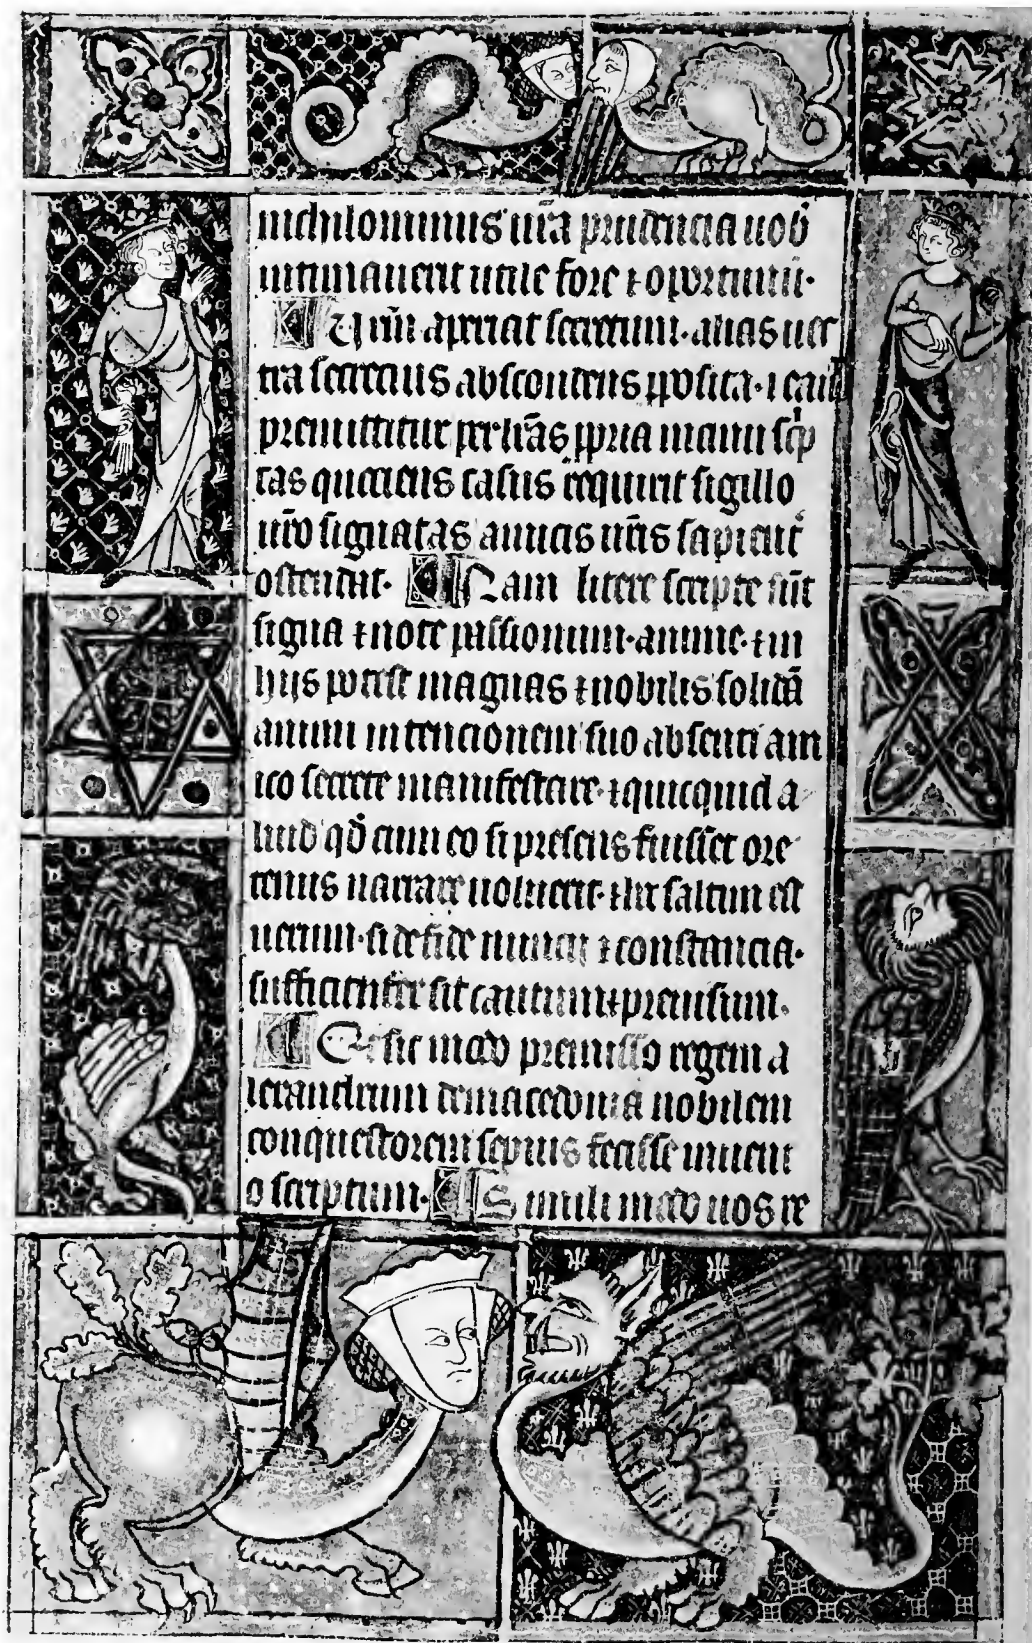 nichilominus ur̄a prudencia uob̄
intimauerit utile fore ⁊ oportunū·
Vt rem̄ aperiat secretum· alias ues
tra secretius abscondens ꝓposita·
premittitur per lr̄as ꝓpria manu sc̄p
tas quociens casus requirit sigillo
ur̄o signatas amicis ur̄is sapient̄
ostendat· Nam litere scripte sūt
signa ⁊ note passionum· anime· ⁊ in
hijs potest magnas ⁊ nobilis solidā
animi intencionem suo absenti am
ico secrete manifestare· ⁊ quicquid a
liud qd̄ cum eo si presens fuisset ore
tenus narrare uoluerit· ⁊ hic saltim est
uerum· si de fide nuncij ⁊ constancia·
sufficienter sit cautum ⁊ preuisum·
Et sic modo premisso regem a
lexandrum de macedonia nobilem
conquestorem sepius fecisse inueni
o scriptum· Simili modo uos re